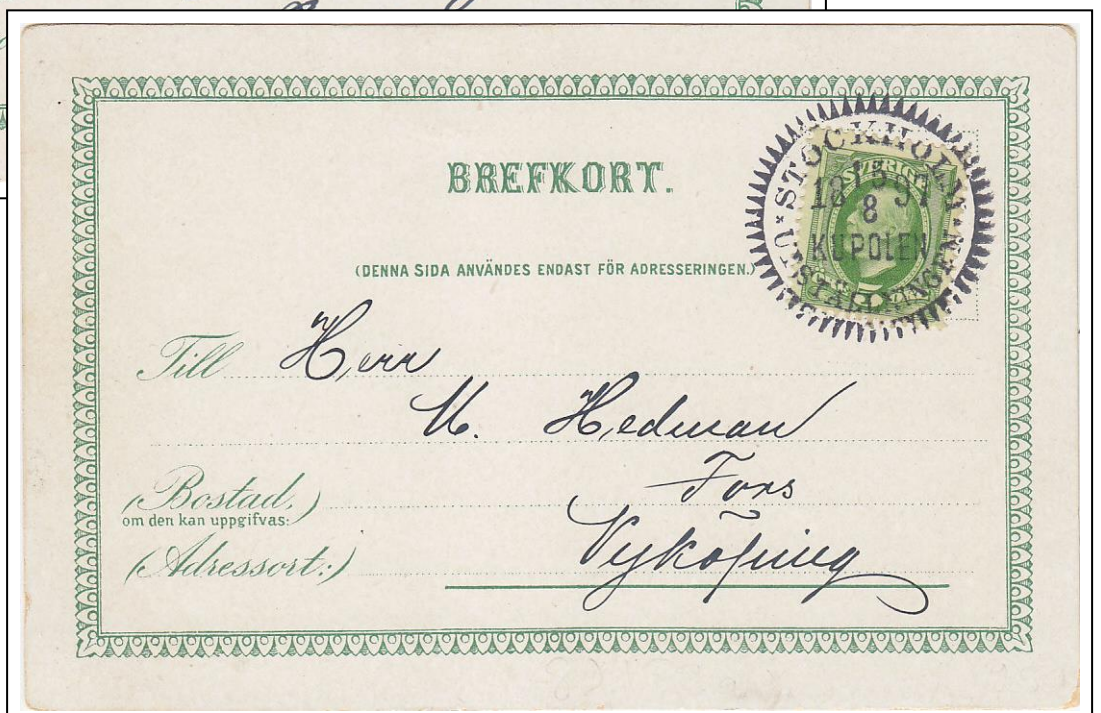 BREFKORT.
(DENNA SIDA ANVÄNDES ENDAST FÖR ADRESSERINGEN.)
STOCKHOLM
SVERIGE
18 15 97
8
KUPOLEN
UTSTÄLLNINGEN
Till Herr
Hedman
(Bostad,
om den kan uppgifvas:)
Fors
(Adressort:) Nyköping